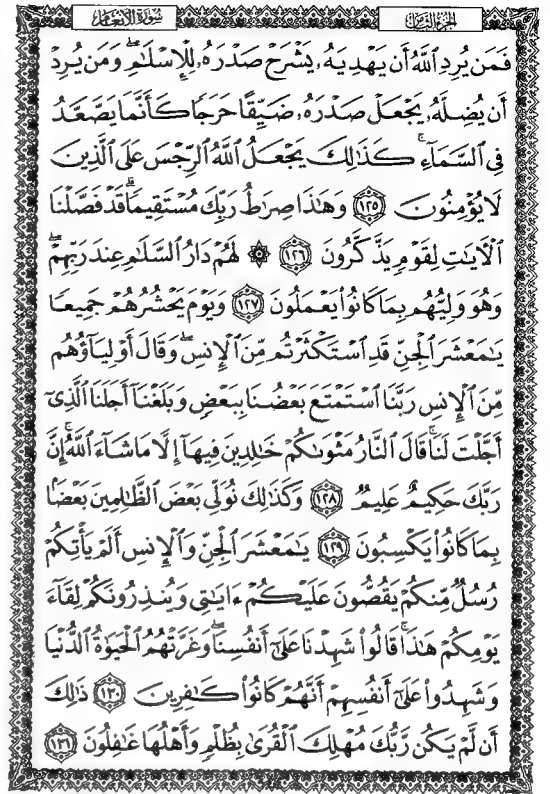 سورة الأنعام
الجزء الثامن
فَمَن يُرِدِ ٱللَّهُ أَن يَهْدِيَهُۥ يَشْرَحْ صَدْرَهُۥ لِلْإِسْلَٰمِ ۖ وَمَن يُرِدْ
أَن يُضِلَّهُۥ يَجْعَلْ صَدْرَهُۥ ضَيِّقًا حَرَجًا كَأَنَّمَا يَصَّعَّدُ
فِى ٱلسَّمَآءِ ۚ كَذَٰلِكَ يَجْعَلُ ٱللَّهُ ٱلرِّجْسَ عَلَى ٱلَّذِينَ
لَا يُؤْمِنُونَ ١٢٥ وَهَٰذَا صِرَٰطُ رَبِّكَ مُسْتَقِيمًا ۗ قَدْ فَصَّلْنَا
ٱلْءَايَٰتِ لِقَوْمٍ يَذَّكَّرُونَ ١٢٦ ۞ لَهُمْ دَارُ ٱلسَّلَٰمِ عِندَ رَبِّهِمْ ۖ
وَهُوَ وَلِيُّهُم بِمَا كَانُوا۟ يَعْمَلُونَ ١٢٧ وَيَوْمَ يَحْشُرُهُمْ جَمِيعًا
يَٰمَعْشَرَ ٱلْجِنِّ قَدِ ٱسْتَكْثَرْتُم مِّنَ ٱلْإِنسِ ۖ وَقَالَ أَوْلِيَآؤُهُم
مِّنَ ٱلْإِنسِ رَبَّنَا ٱسْتَمْتَعَ بَعْضُنَا بِبَعْضٍ وَبَلَغْنَآ أَجَلَنَا ٱلَّذِىٓ
أَجَّلْتَ لَنَا ۚ قَالَ ٱلنَّارُ مَثْوَىٰكُمْ خَٰلِدِينَ فِيهَآ إِلَّا مَا شَآءَ ٱللَّهُ ۗ إِنَّ
رَبَّكَ حَكِيمٌ عَلِيمٌ ١٢٨ وَكَذَٰلِكَ نُوَلِّى بَعْضَ ٱلظَّٰلِمِينَ بَعْضًۢا
بِمَا كَانُوا۟ يَكْسِبُونَ ١٢٩ يَٰمَعْشَرَ ٱلْجِنِّ وَٱلْإِنسِ أَلَمْ يَأْتِكُمْ
رُسُلٌ مِّنكُمْ يَقُصُّونَ عَلَيْكُمْ ءَايَٰتِى وَيُنذِرُونَكُمْ لِقَآءَ
يَوْمِكُمْ هَٰذَا ۚ قَالُوا۟ شَهِدْنَا عَلَىٰٓ أَنفُسِنَا ۖ وَغَرَّتْهُمُ ٱلْحَيَوٰةُ ٱلدُّنْيَا
وَشَهِدُوا۟ عَلَىٰٓ أَنفُسِهِمْ أَنَّهُمْ كَانُوا۟ كَٰفِرِينَ ١٣٠ ذَٰلِكَ
أَن لَّمْ يَكُن رَّبُّكَ مُهْلِكَ ٱلْقُرَىٰ بِظُلْمٍ وَأَهْلُهَا غَٰفِلُونَ ١٣١